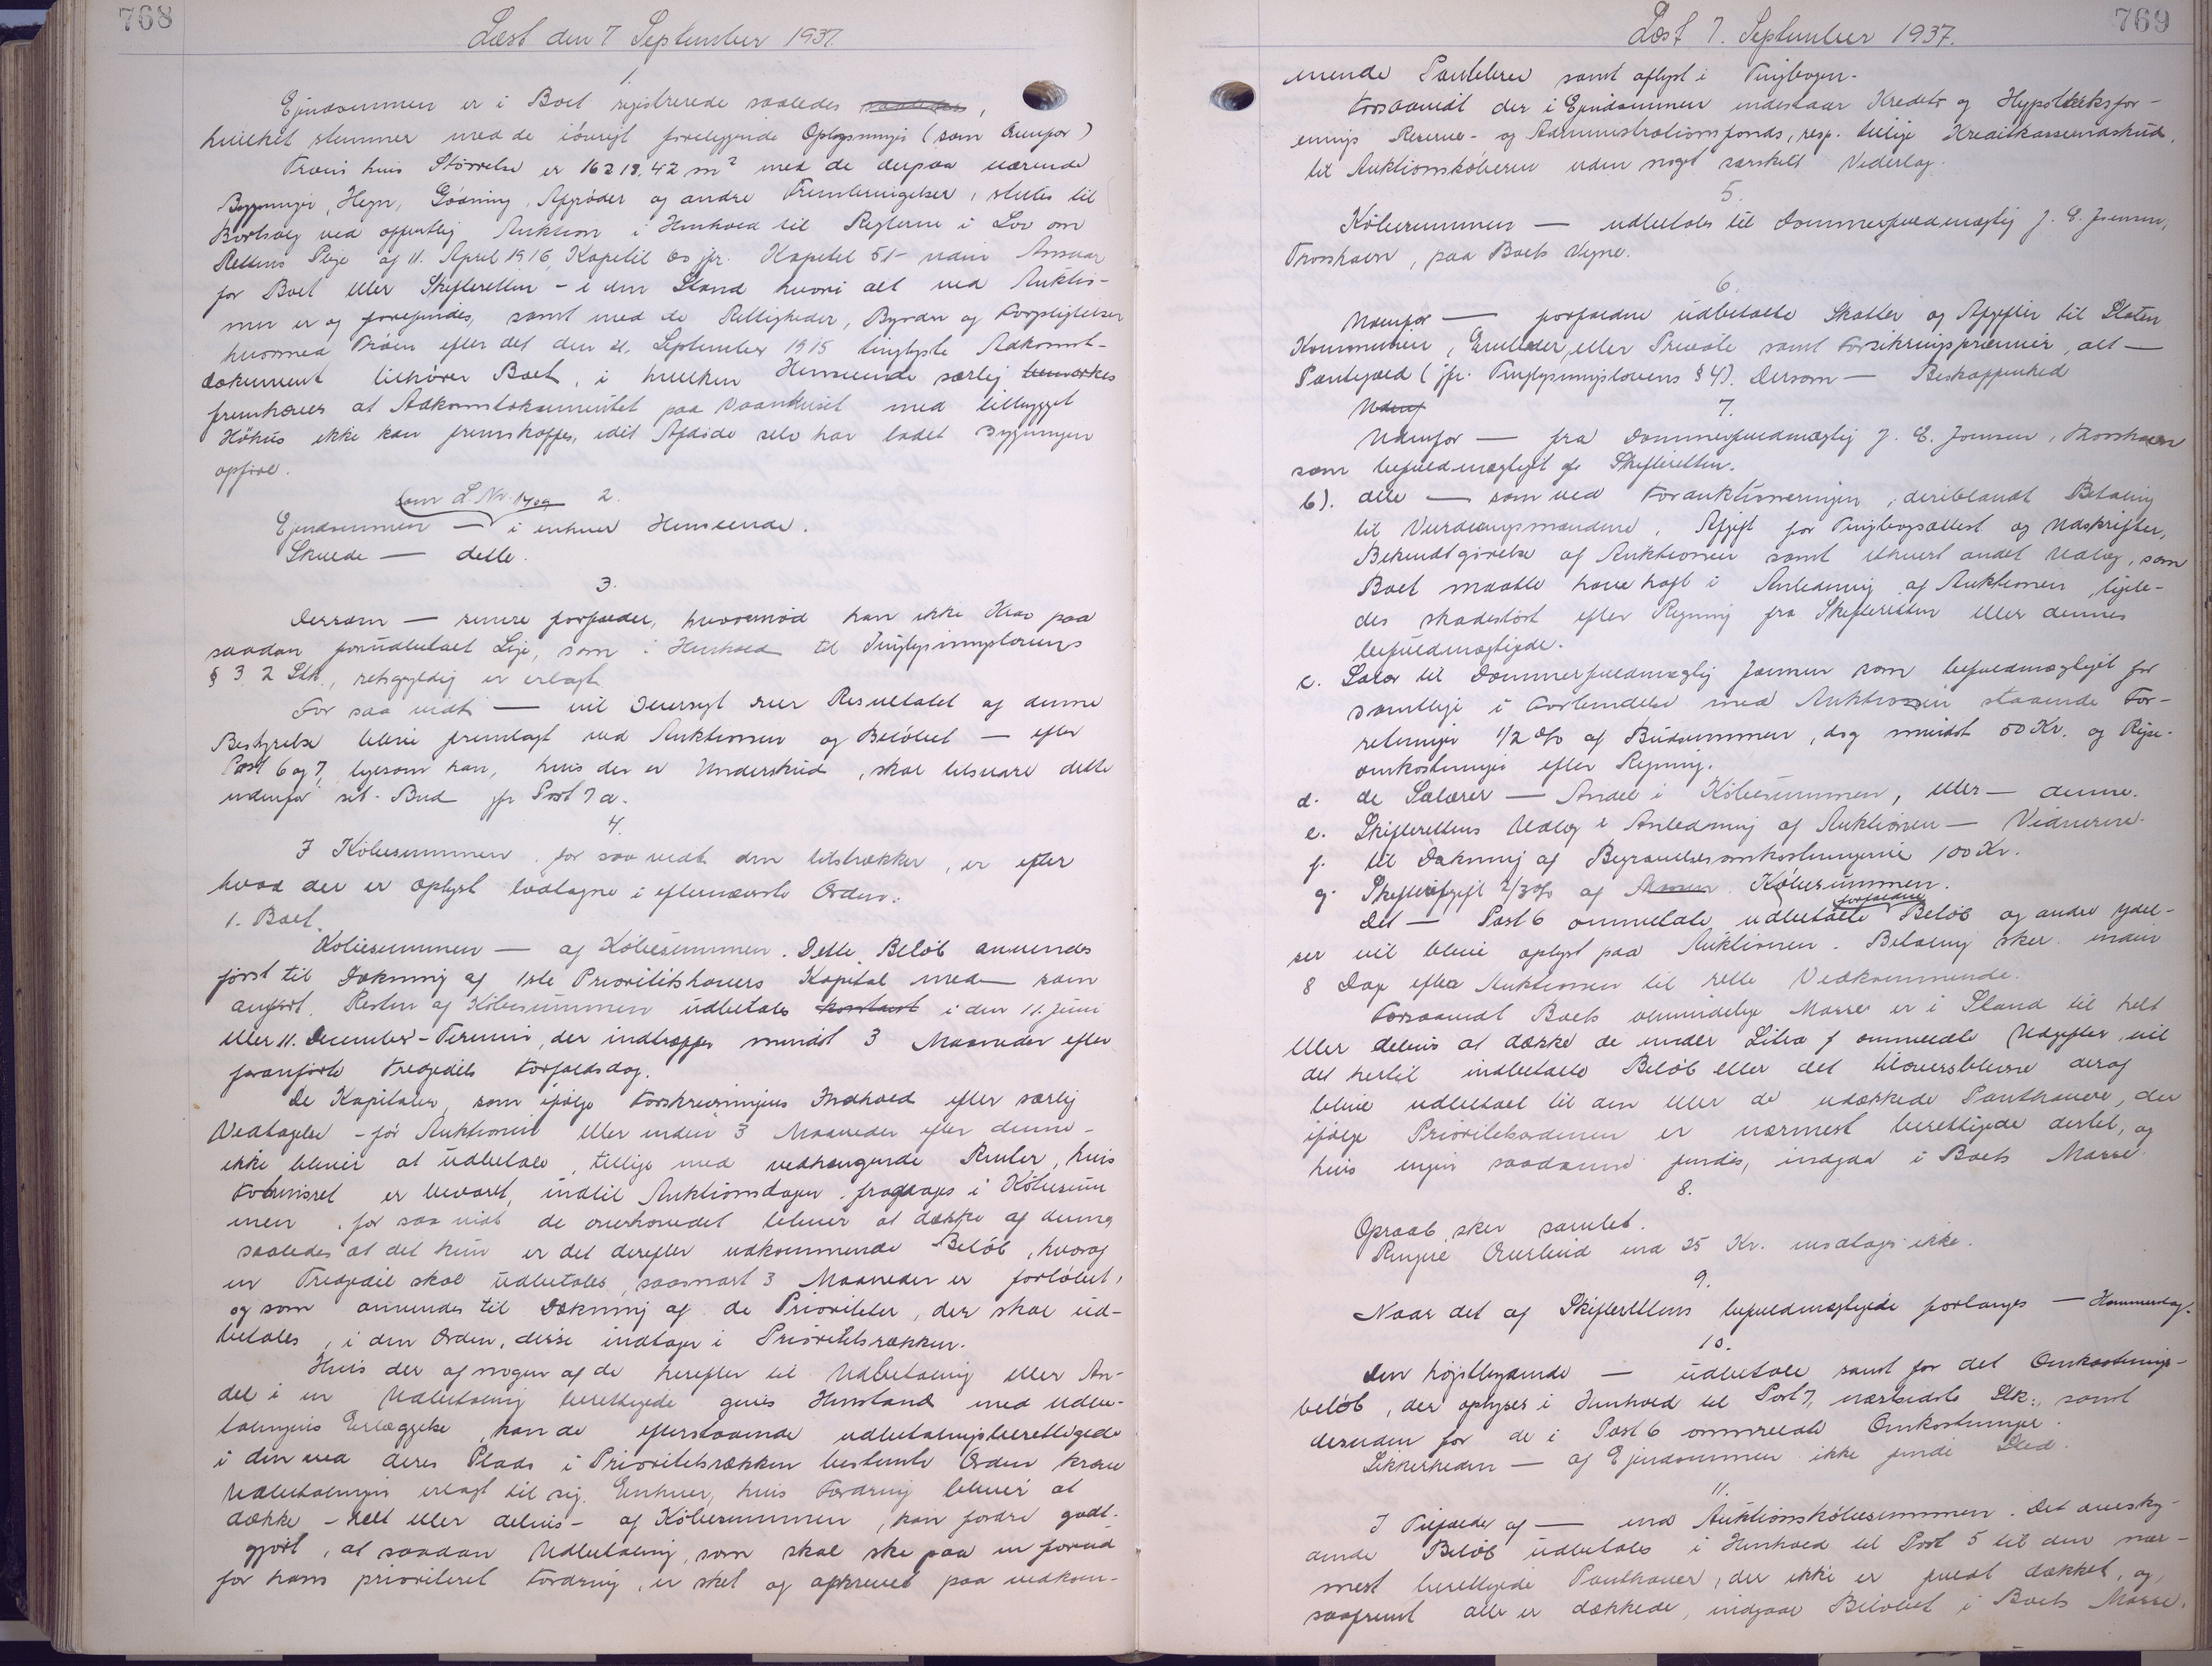 768
Læst den 7 September 1937.
1.
Ejendommen er i Boet registrerede saaledes saaledes,
hvilket stemmer med de iøvrigt foreliggende Oplysninger (som ovenfor)
Trøen hvis Størrelse er 16218,42 m² med de derpaa værende
Bygninger, Hegn, Gødning, Afgrøder og andre Frembringelser, stilles til
Bortsalg ved offentlig Auktion i Henhold til Reglerne i Lov om
Rettens Pleje af 11. April 1916, Kapitel 60 jfr. Kapitel 51 - uden Ansvar
for Boet eller Skifteretten - i den Stand hvori alt ved Auktio-
nen er og forefindes, samt med de Rettigheder, Byrder og Forpligtelser
hvormed Trøen efter det den 21. September 1915 tinglyste Adkomst-
dokument tilhører Boet, i hvilken Henseende særlig bemærkes
fremhæves at Adkomstdokumentet paa Vaanhuset med tilbygget
Höhus ikke kan fremskaffes, idet Afdøde selv har ladet Bygningen
opføre.
som L. Nr. 1409 2.
Ejendommen — i enhver Henseende.
Skulde — dette.
3.
Dersom — senere forfalder, hvorimod han ikke Krav paa
saadan forudbetalt Leje, som i Henhold til Tinglysningslovens
§ 3 2 Stk., retsgyldig er erlagt.
For saa vidt — vil Oversigt over Resultatet af denne
Bestyrelse blive fremlagt ved Auktionen og Beløbet — efter
Post 6 og 7, ligesom han, hvis der er Underskud, skal tilsvare dette
udenfor sit Bud jfr Post 7 a.
4.
I Købesummen, for saa vidt den tilstrækker, er efter
hvad der er oplyst lodtagne i efternævnte Orden:
1. Boet.
Købesummen — af Købesummen. Dette Beløb anvendes
først til Dækning af 1ste Prioritetshavers Kapital med — som
anført. Resten af Købesummen udbetales kontant i den 11. Juni
eller 11. December-Termin, der indtræffer mindst 3 Maaneder efter
foranførte Tredjedels Forfaldsdag.
De Kapitaler, som ifølge Forskrivningens Indhold efter særlig
Vedtagelse - før Auktionen eller inden 3 Maaneder efter denne -
ikke bliver at udbetale, tillige med vedhængende Renter, hvis
Fortrinsret er bevaret, indtil Auktionsdagen fragaar i Købesum
men, for saa vidt de overhovedet bliver at dække af denne
saaledes at det kun er det derefter udkommende Beløb, hvoraf
en Tredjedel skal udbetales, saasnart 3 Maaneder er forløbet,
og som anvendes til Dækning af de Prioriteter, der skal ud-
betales, i den Orden, disse indtager i Prioritetsrækken.
Hvis der af nogen af de herefter til Udbetaling eller An-
del i en Udbetaling berettigede gives Henstand med Udbe-
talingens Erlæggelse, kan de efterstaaende udbetalingsberettigede
i den ved deres Plads i Prioritetsrækken bestemte Orden kræve
Udbetalingen erlagt til sig. Enhver, hvis Fordring bliver at
dække - helt eller delvis - af Købesummen, kan fordre godt-
gjort, at saadan Udbetaling, som skal ske paa en forud
for hans prioriteret Fordring, er sket og afskrevet paa vedkom-
769
Læst 7. September 1937.
mende Pantebrev samt aflyst i Tingbogen.
Forsaavidt der i Ejendommen indestaar Kredit og Hypotheksfor-
enings Reserve- og Administrationsfonds, resp. tillige Kreditkasseindskud,
til Auktionskøberen uden noget særskilt Vederlag.
5.
Købesummen — udbetales til Dommerfuldmægtig J. E. Joensen,
Thorshavn, paa Boets Vegne.
6.
Udenfor — forfaldne udbetalte Skatter og Afgifter til Staten
Kommunen, Embeder, eller Private samt Forsikringspræmier, alt —
Pantegæld (jfr. Tinglysningslovens § 4). Dersom — Beskaffenhed
Udenf 7.
Udenfor — fra Dommerfuldmægtig J. E. Joensen, Thorshavn
som befuldmægtiget af Skifteretten.
b). alle — som ved Foranktioneringen, deriblandt Betaling
til Vurderingsmændene, Afgift for Tingbogsattest og Udskrifter,
Bekendtgørelse af Auktionen samt ethvert andet Udlæg, som
Boet maatte have haft i Anledning af Auktionen, ligele-
des skadesløst efter Regning fra Skifteretten eller dennes
befuldmægtigede.
c. Salær til Dommerfuldmægtig Joensen som befuldmægtiget for
samtlige i Forbindelse med Auktionen staaende For-
retninger 1/2 % af Budsummen, dog mindst 50 Kr. og Rejse-
omkostninger efter Regning.
d. de Salærer — Andel i Købesummen, eller — denne.
e. Skifterettens Udlæg i Anledning af Auktionen — Vidnerne.
f. til Dækning af Begravelsesomkostningerne 100 Kr.
g. Skifteafgift 2/3 % af Købesummen.
forfaldne
Det — Post 6 ommeldte udbetalte Beløb og andre Ydel-
ser vil blive oplyst paa Auktionen. Betaling sker inden
8 Dage efter Auktionen til rette Vedkommende.
Forsaavidt Boets almindelige Masse er i Stand til helt
eller delvis at dække de under Litra f ommeldte Udgifter, vil
det hertil indbetalte Beløb eller det tiloversblevne deraf
blive udbetalt til den eller de udækkede Panthavere, der
ifølge Prioritetsordenen er nærmest berettigede dertil, og
hvis ingen saadanne findes, indgaa i Boets Masse.
8.
Opraab sker samlet.
Ringere Overbud end 25 Kr. modtages ikke.
9.
Naar det af Skifterettens befuldmægtigede forlanges — Hammerslag.
10.
Den højstbydende — udbetale samt for det Omkostnings-
beløb, der oplyses i Henhold til Post 7, næstsidste Stk., samt
desuden for de i Post 6 ommeldte Omkostninger.
Sikkerheden — af Ejendommen ikke finde Sted.
11.
I Tilfælde af — end Auktionskøbesummen. Det oversky-
dende Beløb udbetales i Henhold til Post 5 til den nær-
mest berettigede Panthaver, der ikke er fuldt dækket, og,
saafremt alle er dækkede, indgaar Beløbet i Boets Masse.